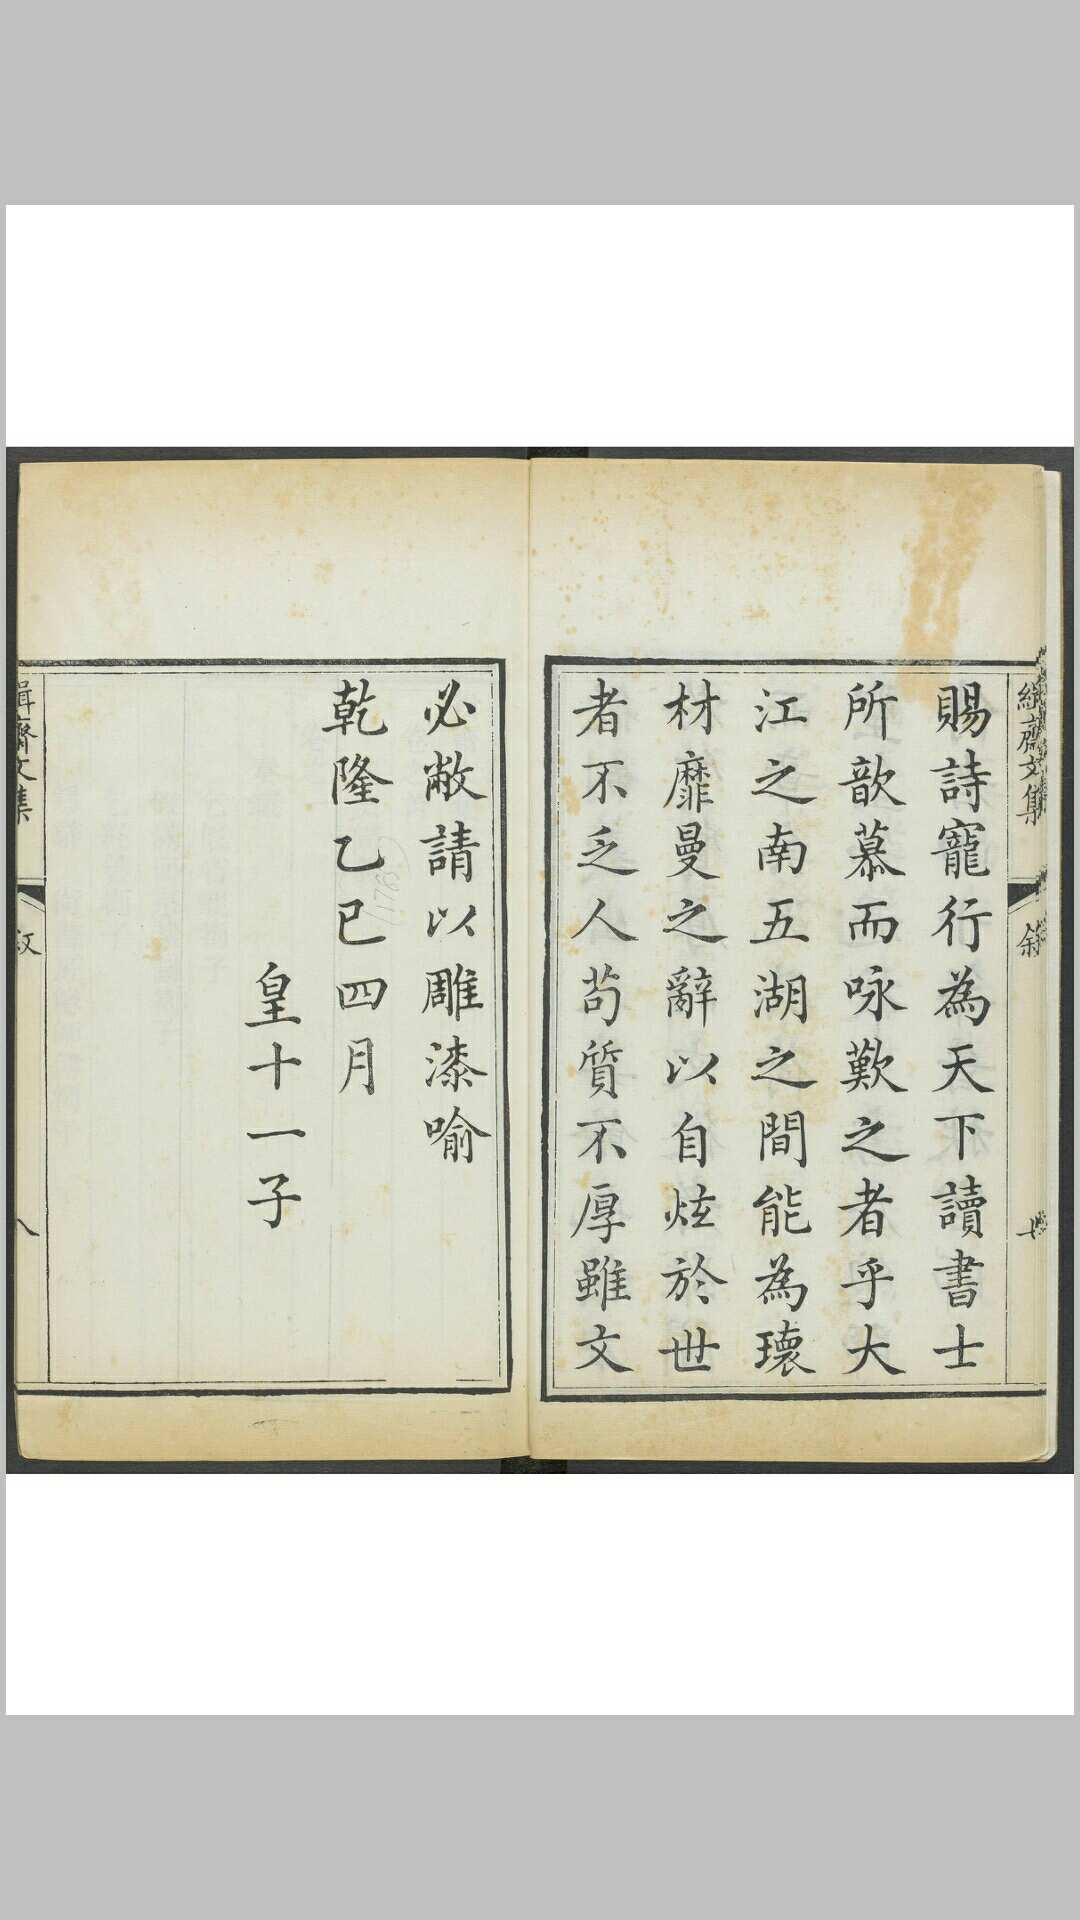 緝齋文集
敘
七
賜詩寵行為天下讀書士
所歆慕而咏歎之者乎大
江之南五湖之間能為瓌
材靡曼之辭以自炫於世
者不乏人苟質不厚雖文
必敝請以雕漆喻
乾隆乙巳四月
皇十一子
緝齋文集
八